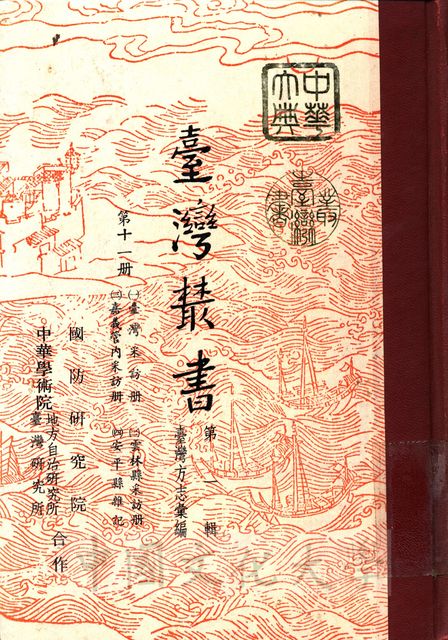 中華大典
臺灣叢書
臺灣叢書
第一輯
臺灣方志彙編
第十一册
㈠臺灣采訪册 ㈡雲林縣采訪册
㈢嘉義管內采訪册 ㈣安平縣雜記
國防研究院
中華學術院
地方自治研究所
臺灣研究所
合作
中國文化大學